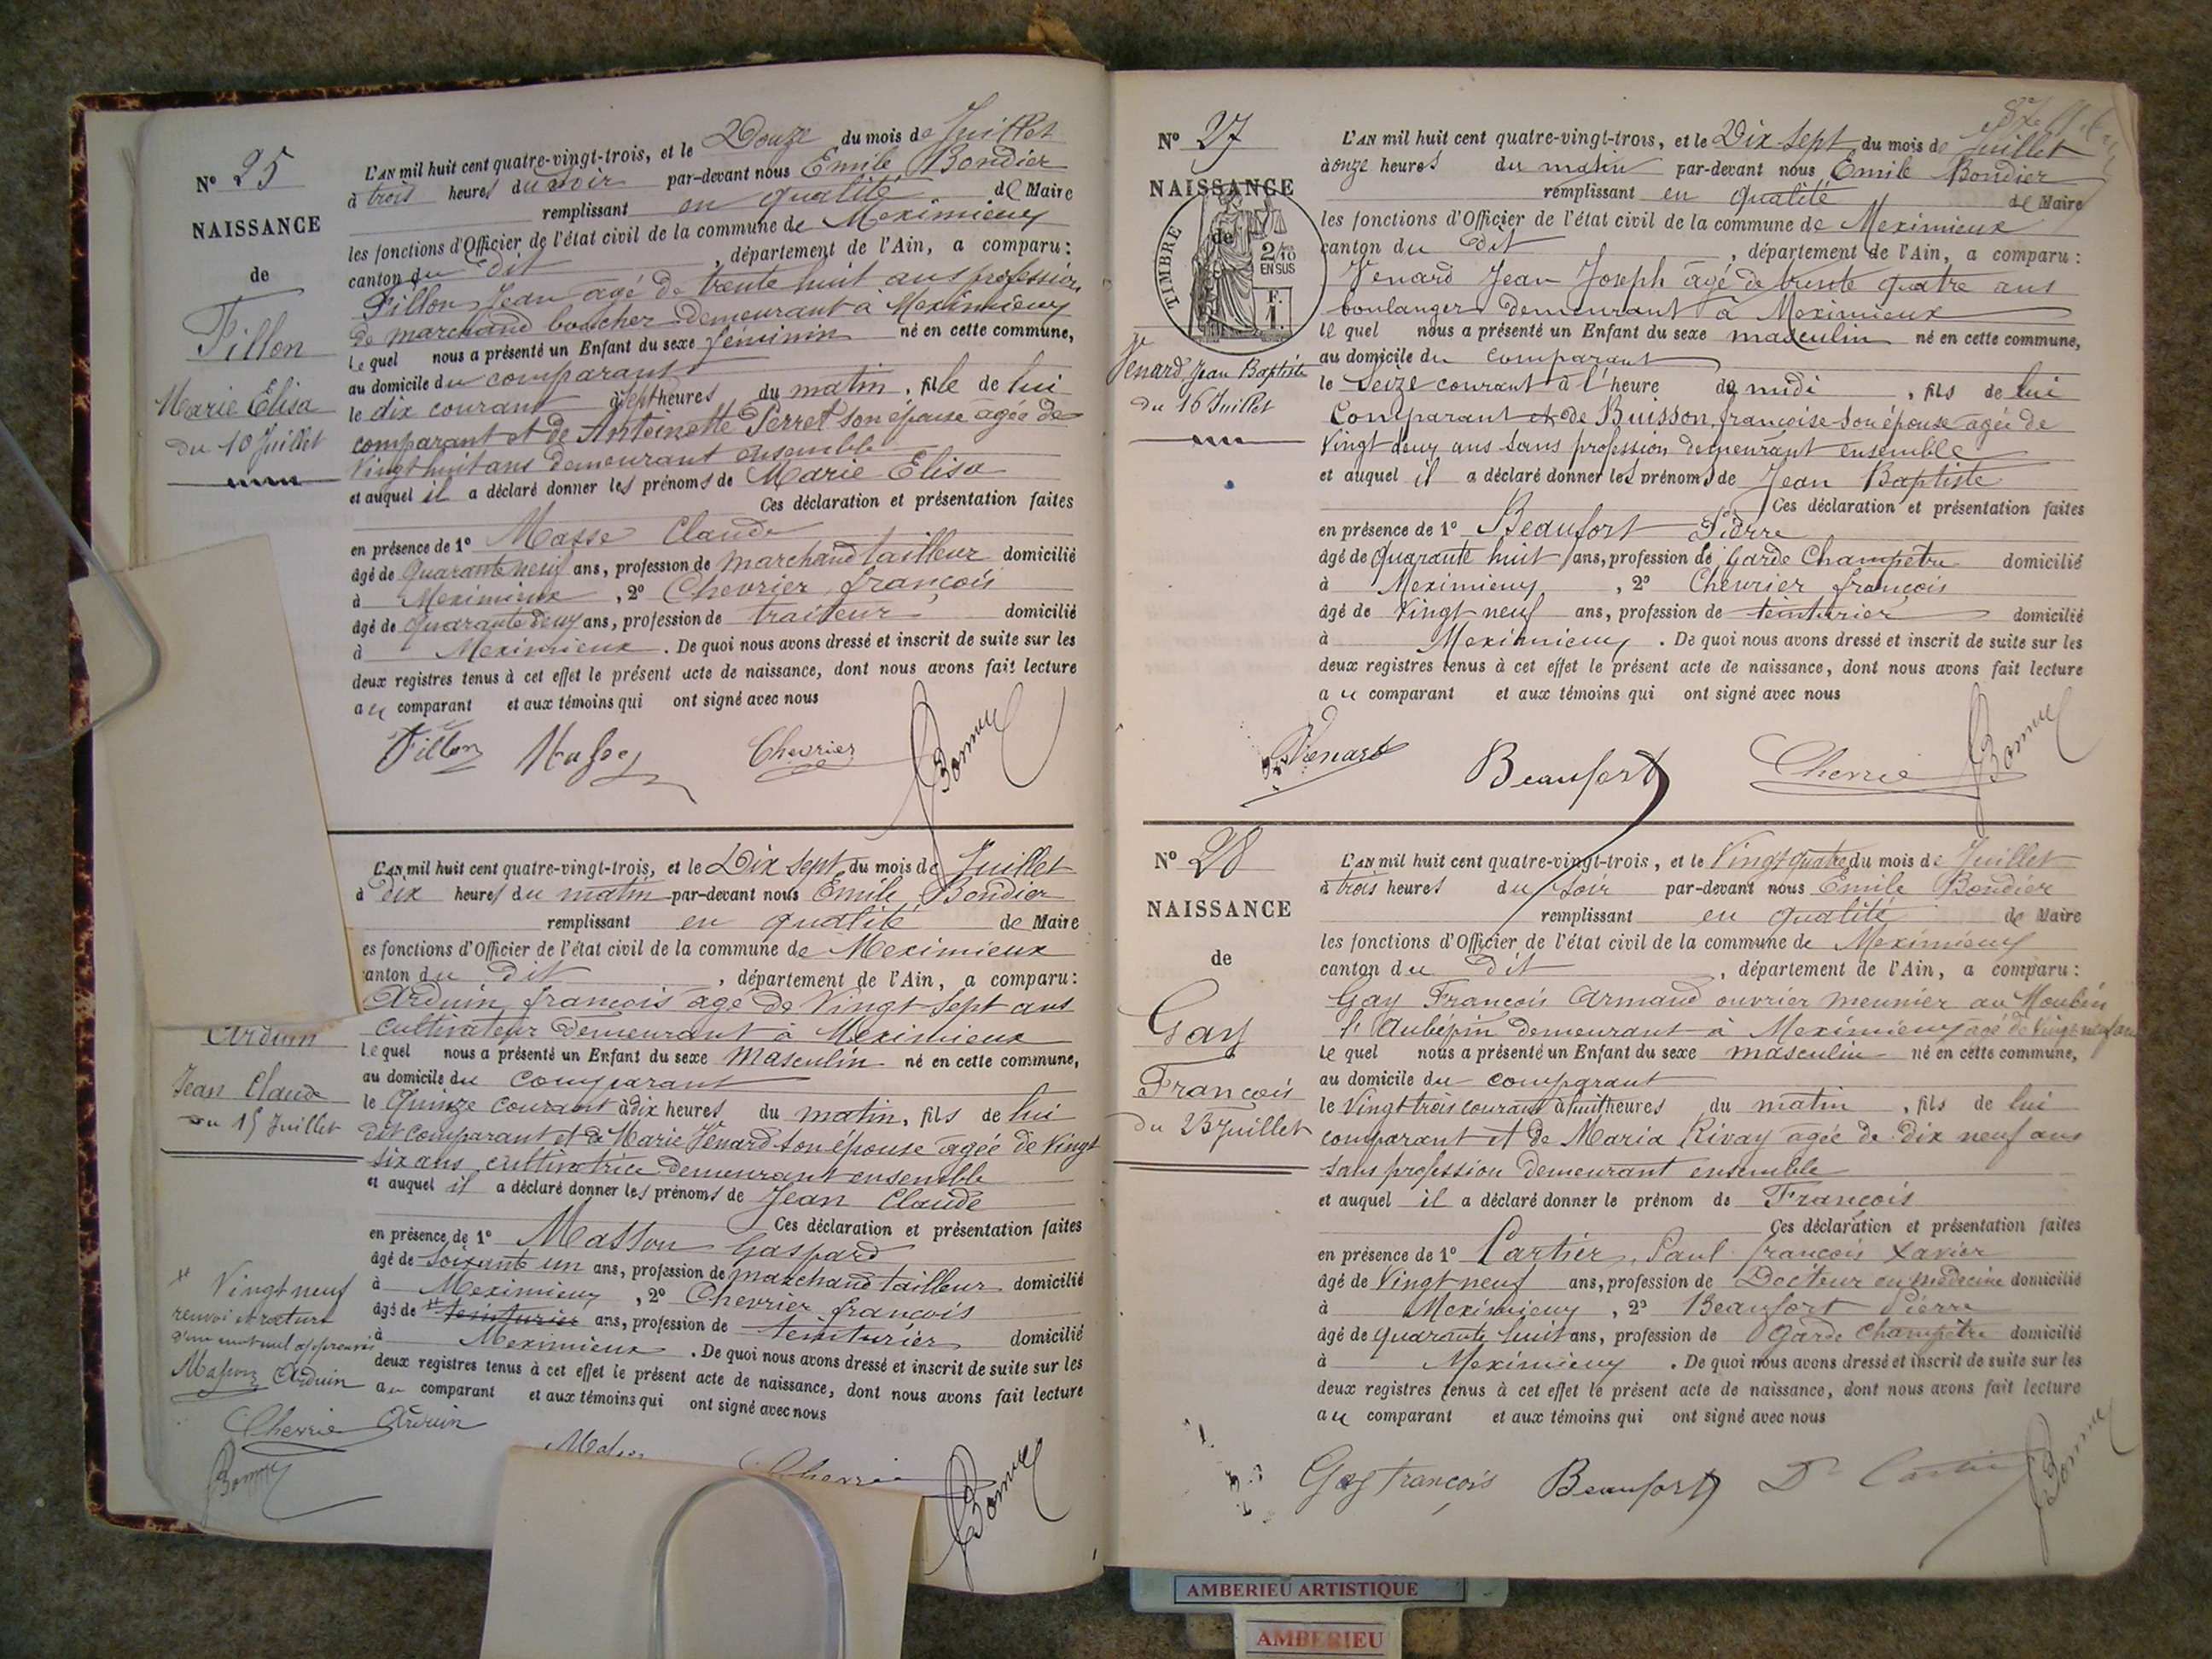 N° 25
NAISSANCE
de
Fillon
Marie Elisa
du 10 Juillet
L'AN mil huit cent quatre-vingt-trois, et le Douze du mois de Juillet
à trois heures du soir par-devant nous Emile Bondier
remplissant en qualité de Maire
les fonctions d'Officier de l'état civil de la commune de Meximieux
canton du dit , département de l'Ain, a comparu :
Fillon Jean agé de trente huit ans profession
de marchand boucher demeurant à Meximieux
lequel nous a présenté un Enfant du sexe féminin né en cette commune,
au domicile du comparant
le dix courant à sept heures du matin, fille de lui
comparant et de Antoinette Perret son épouse agée de
vingt huit ans demeurant ensemble
et auquel il a déclaré donner les prénoms de Marie Elisa
Ces déclaration et présentation faites
en présence de 1° Masse Claude
âgé de quarante neuf ans, profession de marchand tailleur domicilié
à Meximieux , 2° Chevrier françois
âgé de quarante deux ans, profession de traiteur domicilié
à Meximieux . De quoi nous avons dressé et inscrit de suite sur les
deux registres tenus à cet effet le présent acte de naissance, dont nous avons fait lecture
au comparant et aux témoins qui ont signé avec nous
Fillon Masse Chevrier
Arduin
Jean Claude
du 15 Juillet
L'AN mil huit cent quatre-vingt-trois, et le Dix sept du mois de Juillet
à dix heures du matin par-devant nous Emile Bondier
remplissant en qualité de Maire
es fonctions d'Officier de l'état civil de la commune de Meximieux
anton du dit , département de l'Ain, a comparu :
Arduin françois agé de vingt sept ans
cultivateur demeurant à Meximieux
lequel nous a présenté un Enfant du sexe masculin né en cette commune,
au domicile du comparant
le quinze courant à dix heures du matin, fils de lui
dit comparant et de Marie Venard son épouse agée de vingt
six ans cultivatrice demeurant ensemble
et auquel il a déclaré donner les prénoms de Jean Claude
Ces déclaration et présentation faites
en présence de 1° Masson Gaspard
âgé de soixante un ans, profession de marchand tailleur domicilié
à Meximieux , 2° Chevrier françois
âgé de teinturier ans, profession de teinturier domicilié
à Meximieux . De quoi nous avons dressé et inscrit de suite sur les
deux registres tenus à cet effet le présent acte de naissance, dont nous avons fait lecture
au comparant et aux témoins qui ont signé avec nous
Vingt neuf
renvoi et rature
d'un mot nul approuvés
Masson Arduin
Chevrie Arduin
Chevrie
N° 27
NAISSANCE
de
TIMBRE
2/10
EN SUS
F.
1.
Venard Jean Baptiste
du 16 Juillet
L'AN mil huit cent quatre-vingt-trois, et le Dix sept du mois de Juillet
à onze heures du matin par-devant nous Emile Bondier
remplissant en qualité de Maire
les fonctions d'Officier de l'état civil de la commune de Meximieux
canton du dit , département de l'Ain, a comparu :
Venard Jean Joseph agé de trente quatre ans
boulanger demeurant à Meximieux
lequel nous a présenté un Enfant du sexe masculin né en cette commune,
au domicile du comparant
le seize courant à l'heure de midi , fils de lui
comparant et de Buisson françoise son épouse agée de
vingt deux ans sans profession demeurant ensemble
et auquel il a déclaré donner les prénoms de Jean Baptiste
Ces déclaration et présentation faites
en présence de 1° Beaufort Pierre
âgé de quarante huit ans, profession de garde Champetre domicilié
à Meximieux , 2° Chevrier françois
âgé de vingt neuf ans, profession de teinturier domicilié
à Meximieux . De quoi nous avons dressé et inscrit de suite sur les
deux registres tenus à cet effet le présent acte de naissance, dont nous avons fait lecture
au comparant et aux témoins qui ont signé avec nous
Venard Beaufort Chevrie
N° 28
NAISSANCE
de
Gay
François
du 23 Juillet
L'AN mil huit cent quatre-vingt-trois, et le vingt quatre du mois de Juillet
à trois heures du soir par-devant nous Emile Bondier
remplissant en qualité de Maire
les fonctions d'Officier de l'état civil de la commune de Meximieux
canton du dit , département de l'Ain, a comparu :
Gay François Armand ouvrier meunier au Moulin
l'Aubépin demeurant à Meximieux agé de vingt neuf ans
lequel nous a présenté un Enfant du sexe masculin né en cette commune,
au domicile du comparant
le vingt trois courant à huit heures du matin , fils de lui
comparant et de Maria Rivay agée de dix neuf ans
sans profession demeurant ensemble
et auquel il a déclaré donner le prénom de François
Ces déclaration et présentation faites
en présence de 1° Cartier, Paul françois Xavier
âgé de vingt neuf ans, profession de Docteur en médecine domicilié
à Meximieux , 2° Beaufort Pierre
âgé de quarante huit ans, profession de Garde Champêtre domicilié
à Meximieux . De quoi nous avons dressé et inscrit de suite sur les
deux registres tenus à cet effet le présent acte de naissance, dont nous avons fait lecture
au comparant et aux témoins qui ont signé avec nous
Gay françois Beaufort Dr
AMBERIEU ARTISTIQUE
AMBERIEU